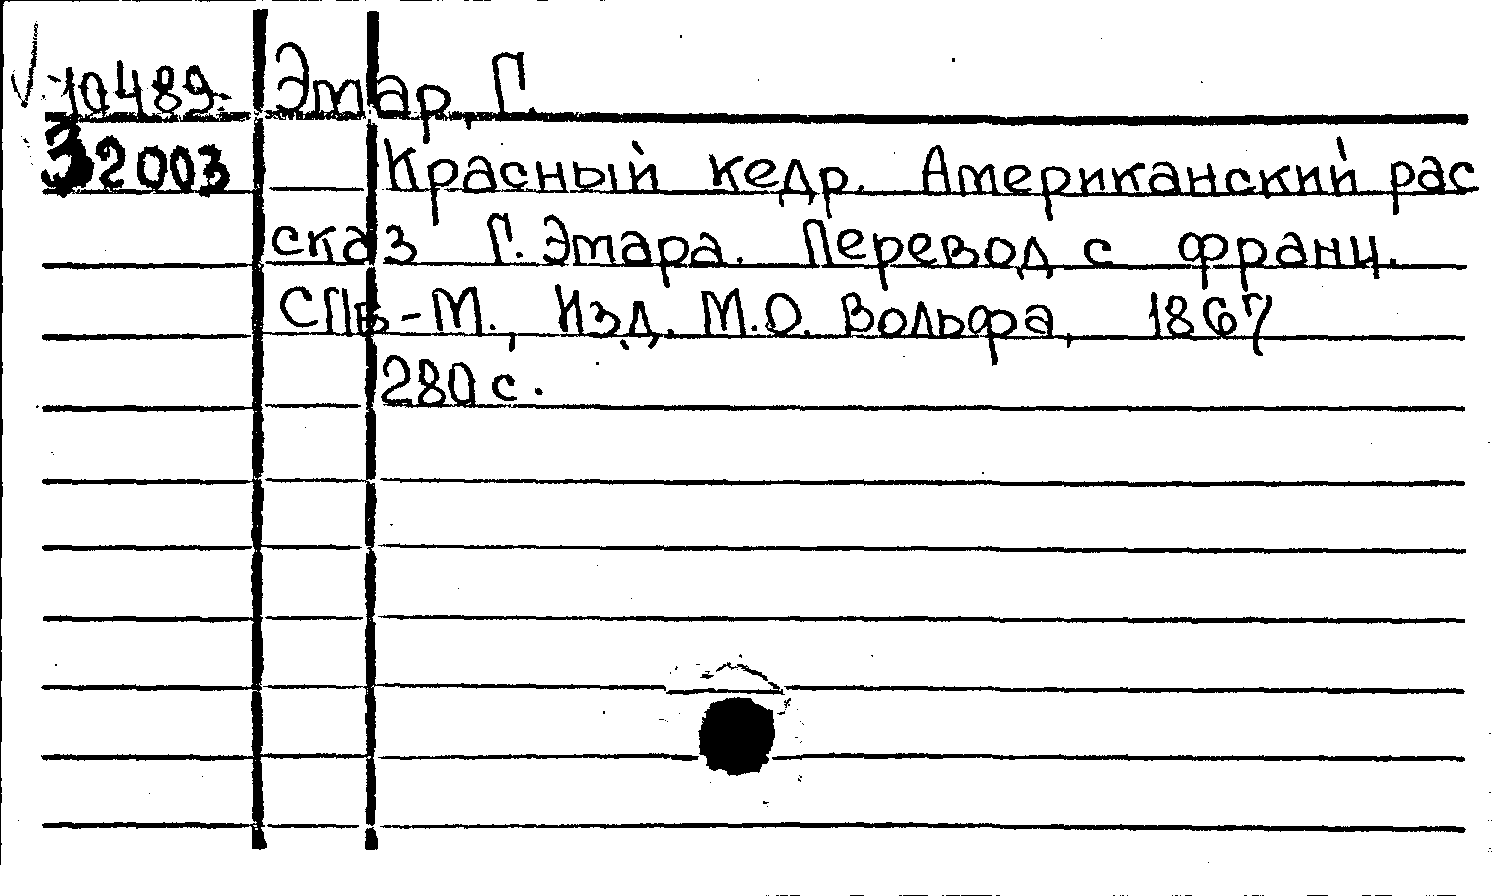 10489 Эмар, Г.
32003 Красный кедр. Американский рас
сказ Г. Эмара. Перевод с франц.
СПБ-М., Изд. М.О. Вольфа, 1867
280 с.